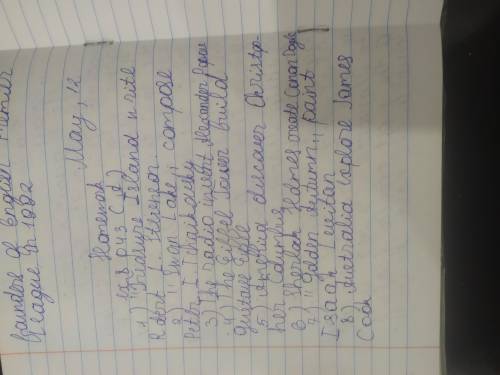 founders of English Premier
League in 1992
May, 12
Homework
1) "Treasure Island" write
Robert L. Stevenson
2) "Swan Lake" compose
Peter I. Tchaikovsky
3) The radio invent Alexander Popov
4) The Eiffel Tower build
Gustave Eiffel
5) America discover Christop-
her Columbus
6) Sherlock Holmes create Conan Doyle
7) "Golden Autumn" paint
Isaak Levitan
8) Australia explore James
Cook